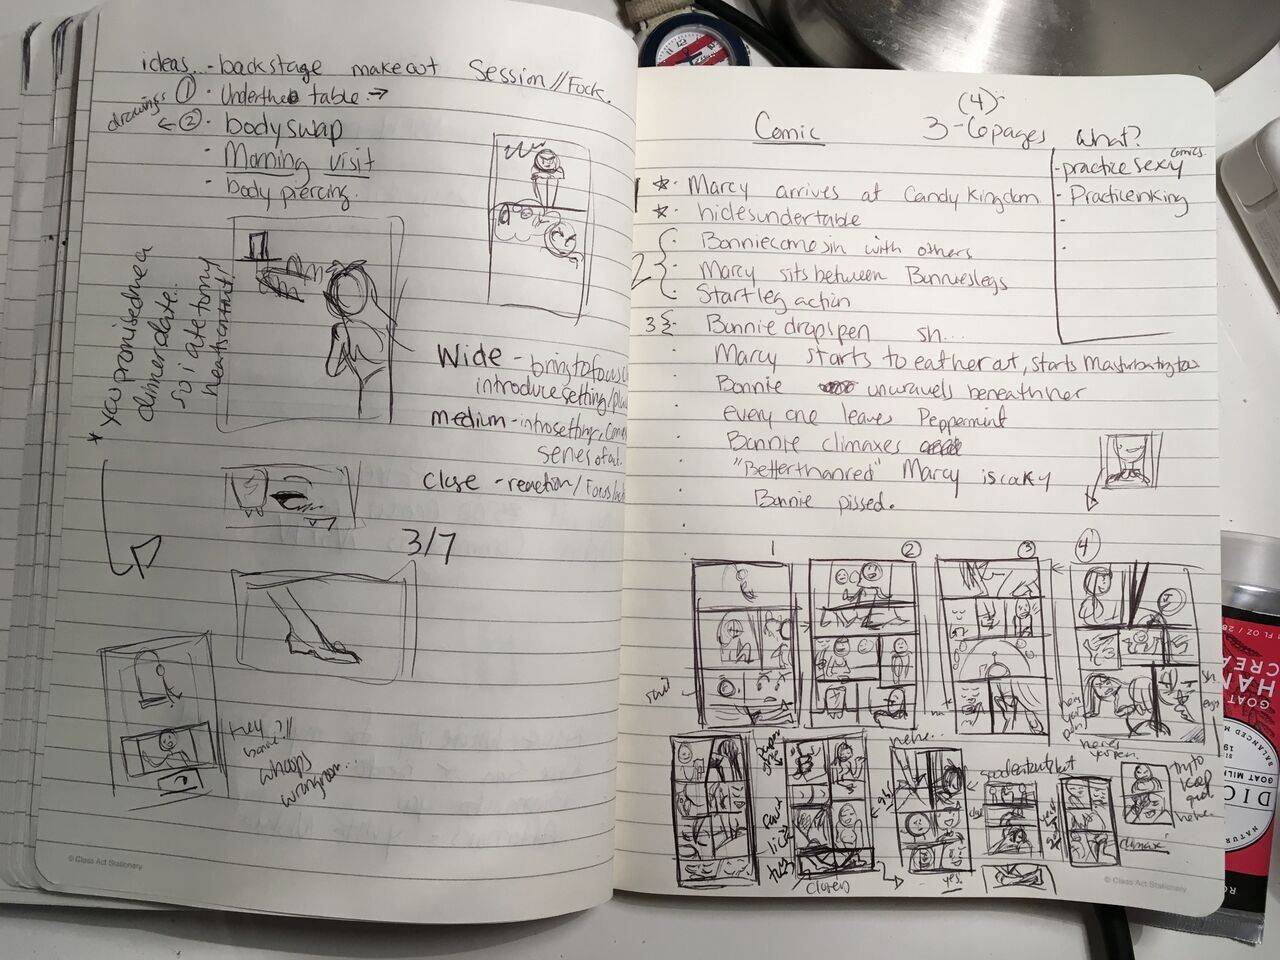 ideas - backstage makeout Session // Fuck.
drawings ① · Under the table →
← ② · bodyswap
· Morning visit
· body piercing.
* you promised me a
dinner date..
so i ate to my
heart's content!
Wide - bring to focus
introduce setting/
medium - intro setting,
series of act.
Close - reaction / Focus
3/7
hey
bonnie!!
whoops
wrong room...
© Class Act Stationery
(4)
Comic 3-6 pages What?
comics.
- practice sexy
- Practice inking
1 * · Marcy arrives at Candy Kingdom
* · hides under table
2 { · Bonnie comes in with others
· Marcy sits between Bonnie's legs
· Start leg action
3 { · Bonnie drops pen sh...
· Marcy starts to eat her out, starts Masturbating too
· Bonnie unravels beneath her
· every one leaves Peppermint
· Bonnie climaxes
· "Better than red" Marcy is cocky
Bonnie pissed.
1 ② ③ ④
sh
here's
your
pen!
hehe..
here's
yo pen.
try to
keep
quiet
hehe..
climax
yes.
© Class Act Stationery
FL OZ / 28
HAN
CREA
GOAT
BALANCED M
GOAT MILK
DIC
NATUR